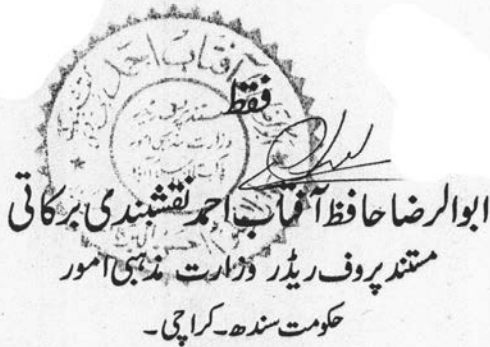 فقط
ابوالرضا حافظ آفتاب احمد نقشبندی برکاتی
مستند پروف ریڈر وزارت مذہبی امور
حکومت سندھ۔ کراچی۔